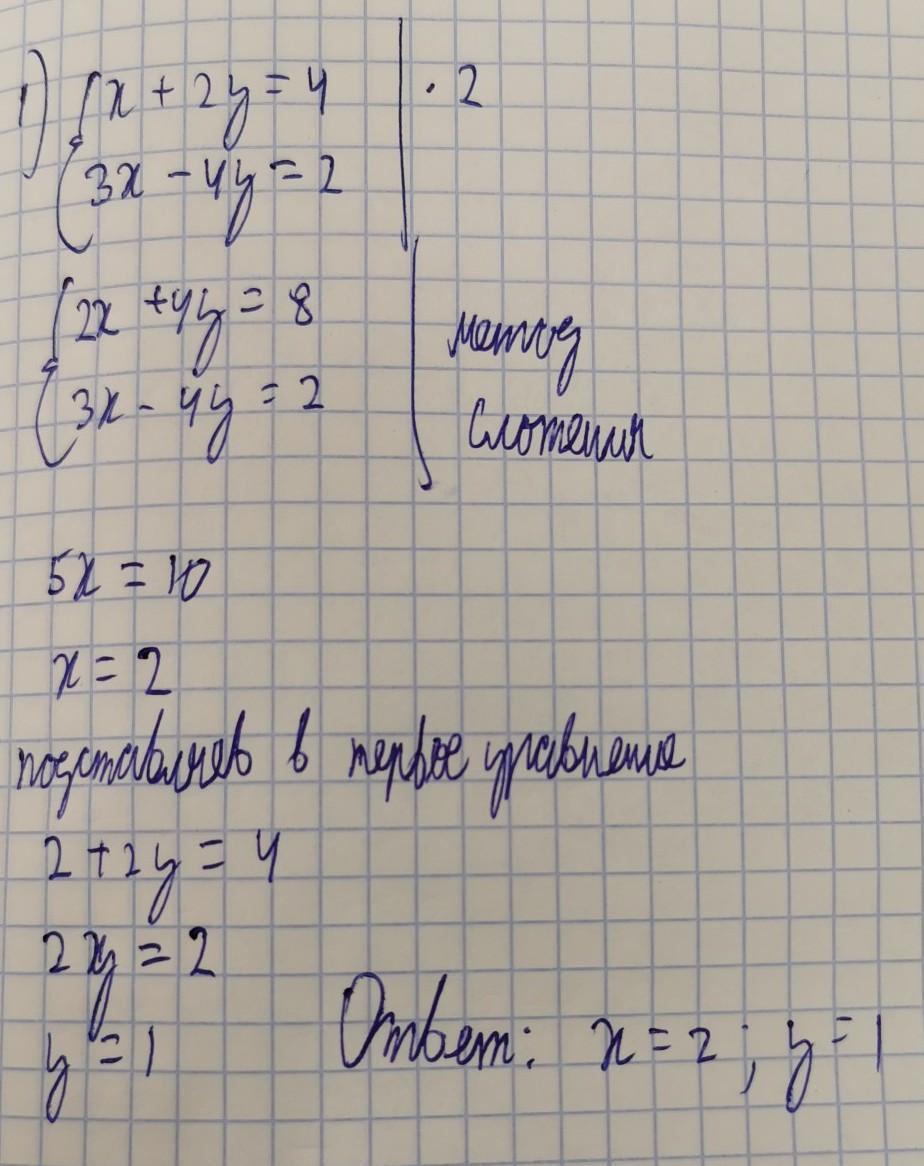 1) { x + 2y = 4 | · 2
3x - 4y = 2
{ 2x + 4y = 8 | метод
3x - 4y = 2 | сложения
5x = 10
x = 2
подставляев в первое уравнение
2 + 2y = 4
2y = 2
y = 1 Ответ: x = 2 ; y = 1